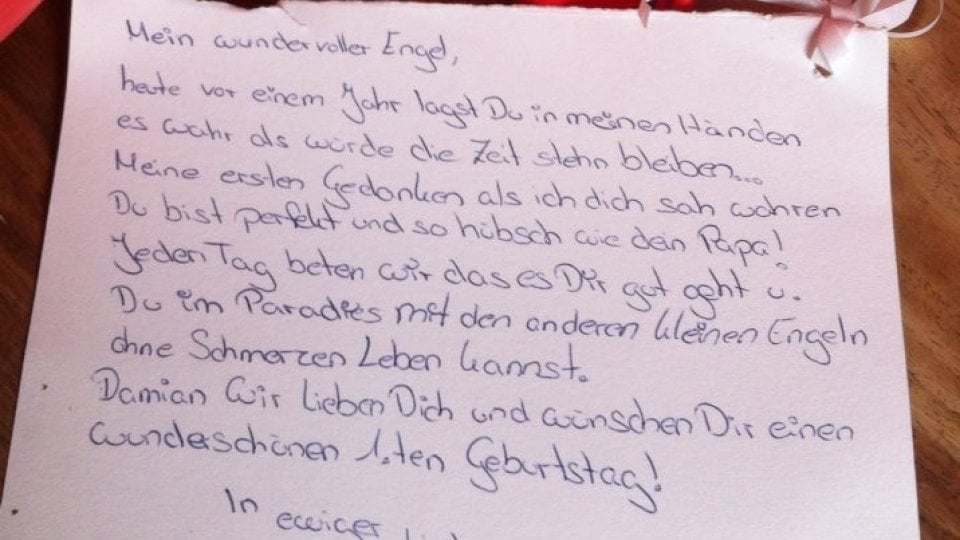 Mein wundervoller Engel,
heute vor einem Jahr lagst Du in meinen Händen
es wahr als würde die Zeit stehn bleiben...
Meine ersten Gedanken als ich dich sah wahren
Du bist perfekt und so hübsch wie dein Papa!
Jeden Tag beten wir das es Dir gut geht u.
Du im Paradies mit den anderen kleinen Engeln
ohne Schmerzen Leben kannst.
Damian Wir lieben Dich und wünschen Dir einen
wunderschönen 1.ten Geburtstag!
In ewiger